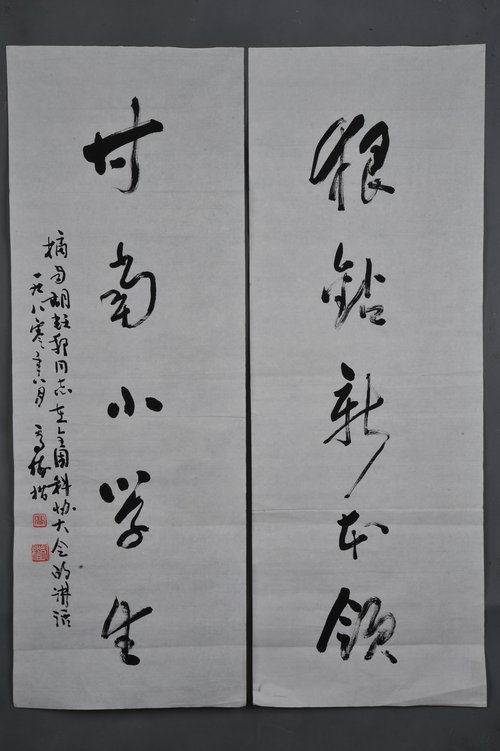 狠鉆新本領
甘當小学生
摘自胡耀邦同志在全国科协大会的讲话
一九八零年八月